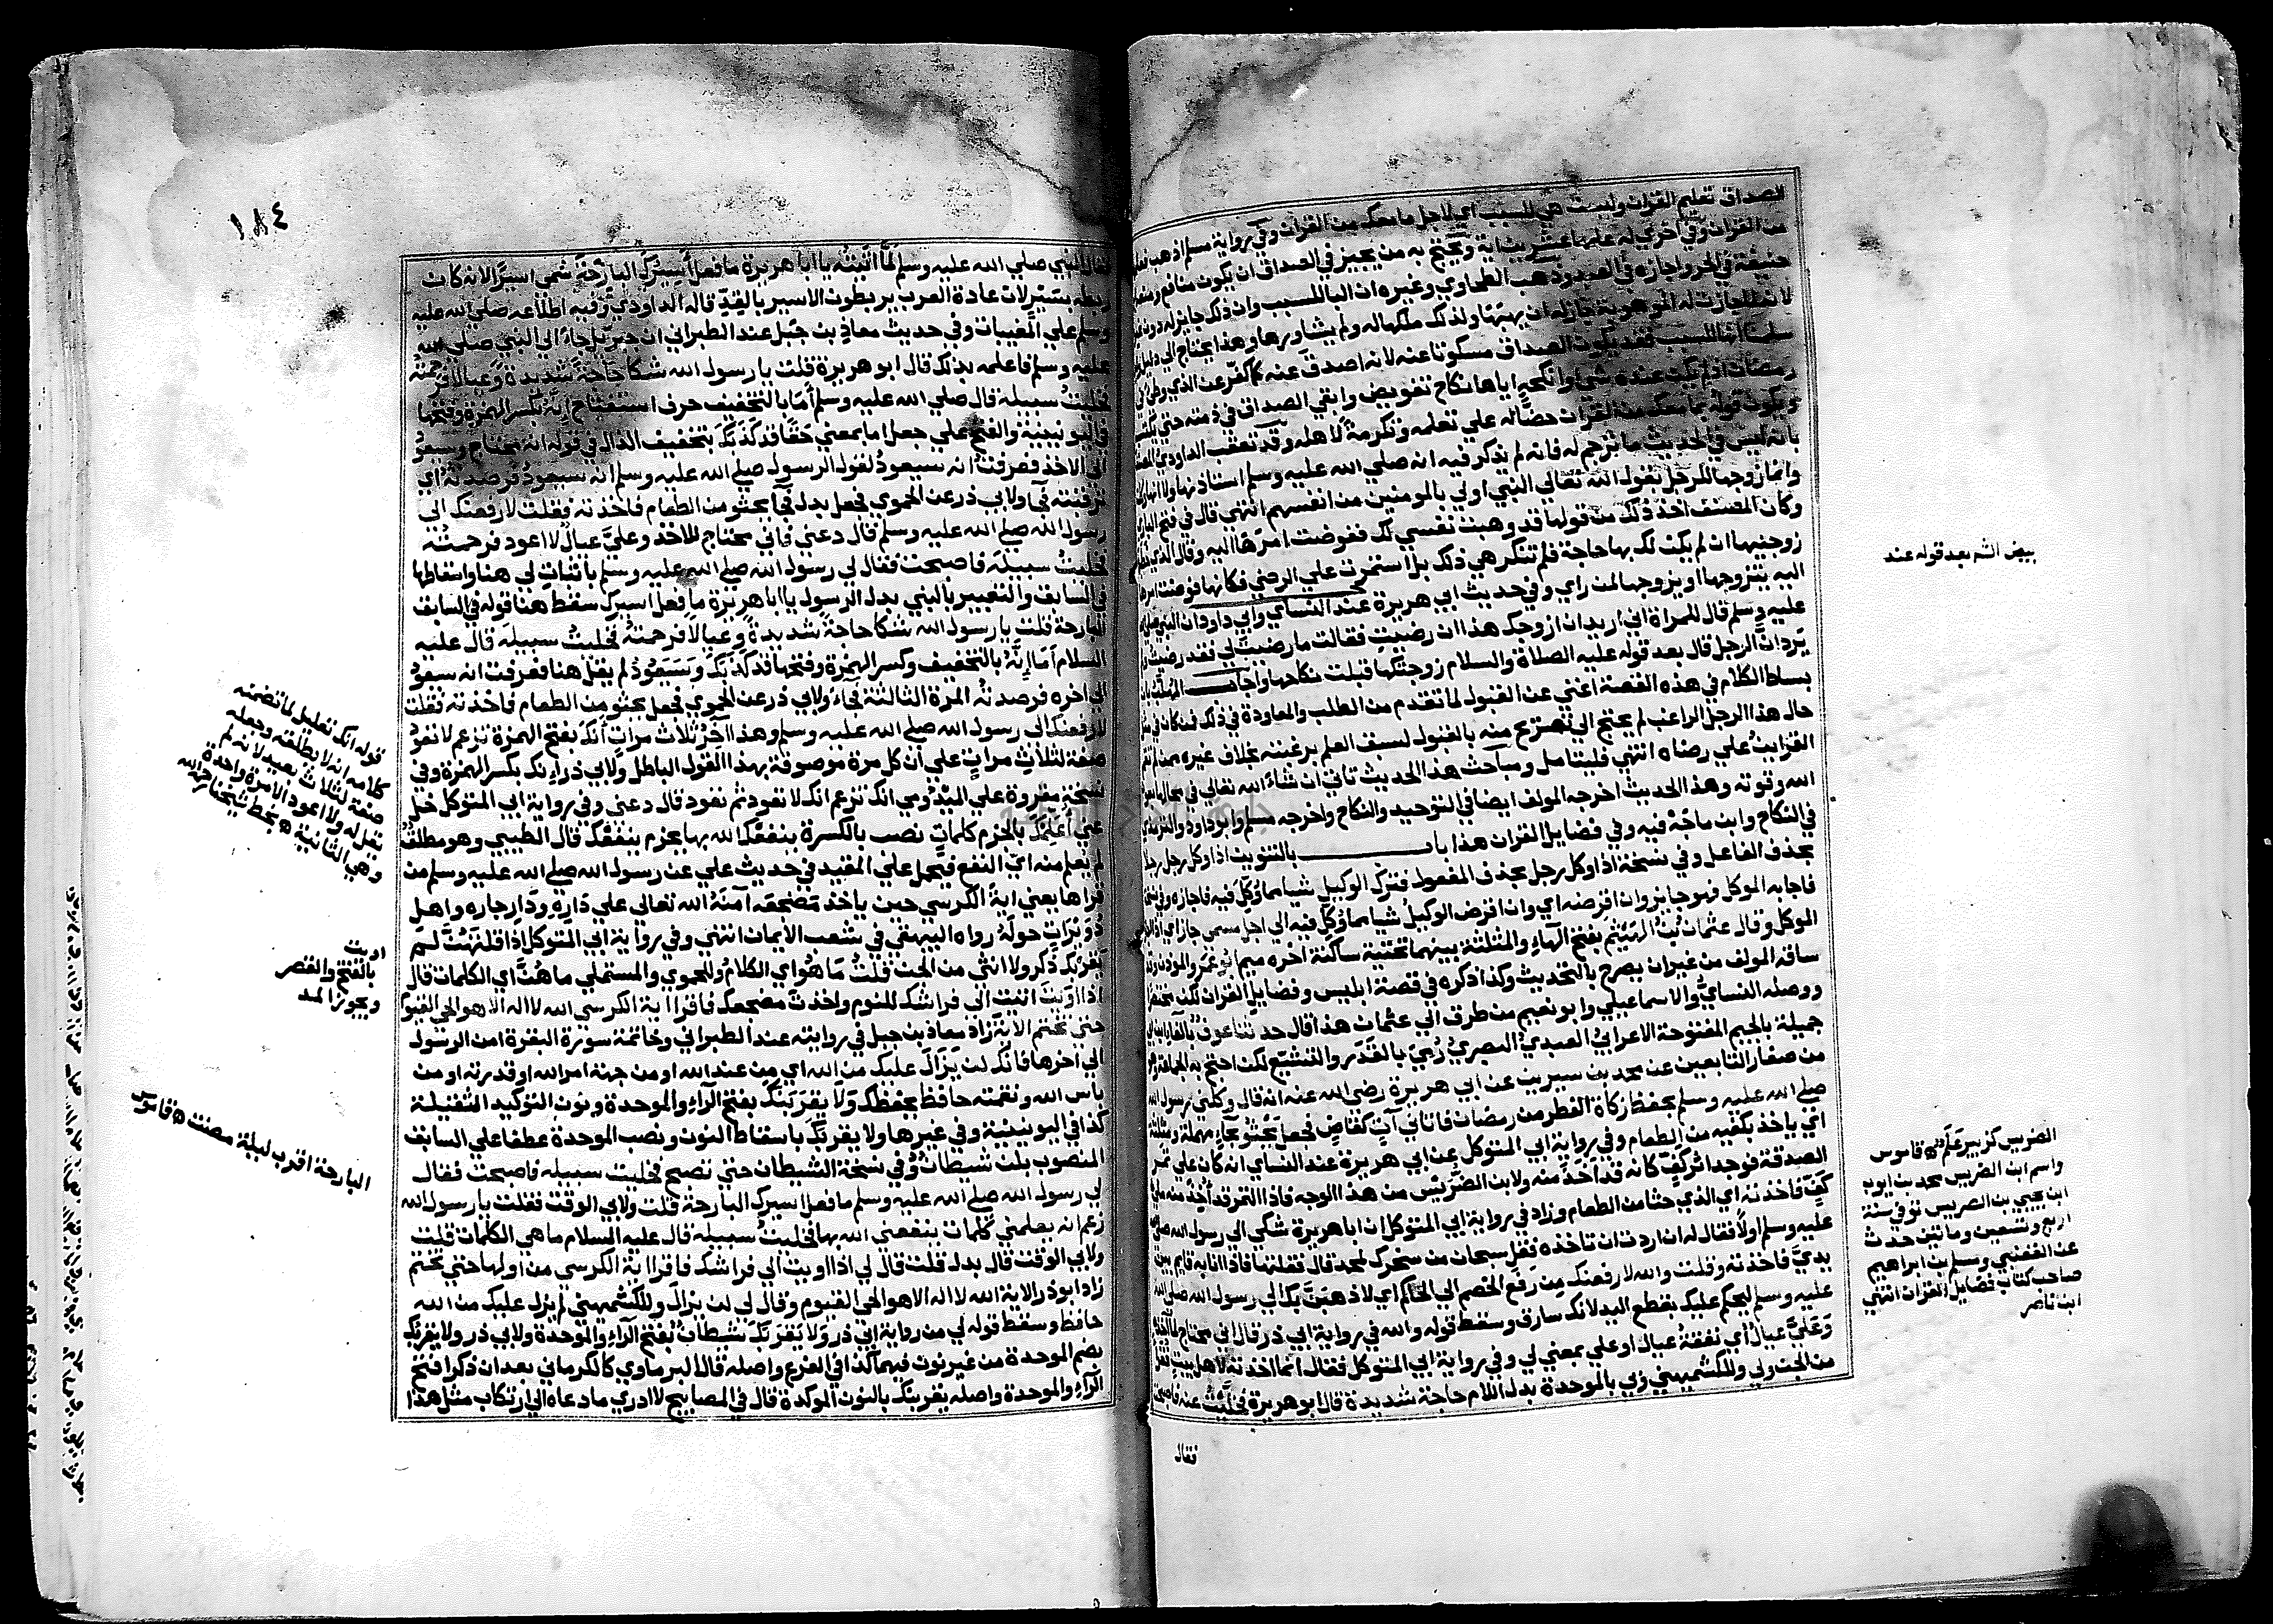 الصداق تعليم القران وليست هي للسبب اي لاجل ما معك من القران وفي رواية مسلم اذهب فعلمها
من القران وفي اخري له علمها عشرين اية ويحتج به من يجيز في الصداق ان يكون منافع
حنيفة في الحر واجازه في العبد وذهب الطحاوي وغيره ان البا للسبب وان ذلك جايز له دون
لانه لما جازت له الموهوبة جاز له ان يهبها ولذلك ملكها له ولم يشاورها وهذا يحتاج الي دليل
سلمنا انها للسبب فقد يكون الصداق مسكوتا عنه لانه اصدق عنه كما كفر عن الذي وطئ في
رمضان اذ لم يكن عنده شي او انكحه اياها نكاح تفويض وابقي الصداق في ذمته حتي يكتسبه
ويكون قوله بما معك من القران حضا له علي تعلمه وتكرمة لاهله وقد تعقب الداودي المصنف
بانه ليس في الحديث ما ترجم له فانه لم يذكر فيه انه صلي الله عليه وسلم استاذنها ولا انها وكلته
وانما زوجها للرجل بقول الله تعالي النبي اولي بالمومنين من انفسهم انتهي قال في فتح الباري
وكان المصنف اخذ ذلك من قولها قد وهبت نفسي لك ففوضت امرها اليه وقال الذي خطبها
زوجنيها ان لم يكن لك بها حاجة فلم تنكر هي ذلك بل استمرت علي الرضي فكانها فوضت امرها
اليه يتزوجها او يزوجها لمن راي وفي حديث ابي هريرة عند النساي وابي داود ان النبي صلي الله
عليه وسلم قال للمراة اني اريد ان ازوجك هذا ان رضيت فقالت ما رضيت لي فقد رضيت
يرد ان الرجل قال بعد قوله عليه الصلاة والسلام زوجتكها قبلت نكاحها واجاب المهلب بان
بساط الكلام في هذه القصة اغني عن القبول لما تقدم من الطلب والمعاودة في ذلك فمن كان في مثل
حال هذا الرجل الراغب لم يحتج الي تصريح منه بالقبول لسبق العلم برغبته بخلاف غيره ممن لم تقم
القراين علي رضاه انتهي فليتامل ومباحث هذا الحديث تاتي ان شاء الله تعالي في محالها بعون
الله وقوته وهذا الحديث اخرجه المولف ايضا في التوحيد والنكاح واخرجه مسلم وابو داود والترمذي
في النكاح وابن ماجة فيه وفي فضايل القران هذا باب بالتنوين اذا وكل رجل رجلا
بحذف الفاعل وفي نسخة اذا وكل رجل بحذف المفعول فترك الوكيل شيا مما وكل فيه فاجازه وفي نسخة
فاجابه الموكل فهو جايز وان اقرضه اي وان اقرض الوكيل شيا مما وكل فيه الي اجل مسمي جاز اي اذا اجازه
الموكل وقال عثمان بن الهيثم بفتح الهاء والمثلثة بينهما تحتية ساكنة اخره ميم ابو عمرو الموذن
ساقه المولف من غير ان يصرح بالتحديث وكذا ذكره في قصة ابليس وفضايل القران لكن مختصرا
ووصله النساي والاسماعيلي وابو نعيم من طرق الي عثمان هذا قال حدثنا عوف بالفاء ابن ابي
جميلة بالجيم المفتوحة الاعرابي العبدي البصري رمي بالقدر والتشيع لكن احتج به الجماعة وهو
من صغار التابعين عن محمد بن سيرين عن ابي هريرة رضي الله عنه انه قال وكلني رسول الله
صلي الله عليه وسلم بحفظ زكاة الفطر من رمضان فاتاني آت كقاض فجعل يحثو بحاء مهملة ومثلثة
اي ياخذ بكفيه من الطعام وفي رواية ابي المتوكل عن ابي هريرة عند النساي انه كان علي تمر
الصدقة فوجد اثر كف كانه قد اخذ منه ولابن الضريس من هذا الوجه فاذا التمر قد اخذ منه ملء
كف فاخذته اي الذي حثا من الطعام وزاد في رواية ابي المتوكل ان ابا هريرة شكي الي رسول الله صلي الله
عليه وسلم اولا فقال له ان اردت ان تاخذه فقل سبحان من سخرك لمحمد قال فقلتها فاذا انا به قايم بين
يدي فاخذته وقلت والله لارفعنك من رفع الخصم الي الحاكم اي لاذهبن بك الي رسول الله صلي الله
عليه وسلم ليحكم عليك بقطع اليد لانك سارق وسقط قوله والله في رواية ابي ذر قال اني محتاج
وعلي عيال اي نفقة عيال او علي بمعني لي وفي رواية ابي المتوكل فقال انما اخذته لاهل بيت فقرا
من الجن ولي وللكشميهني وبي بالموحدة بدل اللام حاجة شديدة قال ابو هريرة فخليت عنه فاصبحت
فقال
بيض الشه بعد قوله عند
الضريس كزبير علم ه قاموس
واسم ابن الضريس محمد بن ايوب
ابن يحيي بن الضريس توفي سنة
اربع وتسعين وماتين حدث
عن القعنبي ومسلم بن ابراهيم
صاحب كتاب فضايل القران انتهي
ابن ناصر
١٨٤
فقال النبي صلي الله عليه وسلم لما اتيته يا ابا هريرة ما فعل اسيرك البارحة سمي اسيرا لانه كان
ربطه بسير لان عادة العرب يربطون الاسير بالقد قاله الداودي وفيه اطلاعه صلي الله عليه
وسلم علي المغيبات وفي حديث معاذ بن جبل عند الطبراني ان جبريل جاء الي النبي صلي الله
عليه وسلم فاعلمه بذلك قال ابو هريرة قلت يا رسول الله شكا حاجة شديدة وعيالا فرحمته
فخليت سبيله قال صلي الله عليه وسلم أما بالتخفيف حرف استفتاح إنه بكسر الهمزة وفتحها
في اليونينية والفتح علي جعل اما بمعني حقا قد كذبك بتخفيف الذال في قوله انه محتاج وسيعود
الي الاخذ فعرفت انه سيعود لقول الرسول صلي الله عليه وسلم انه سيعود فرصدته اي
ترقبته فجا ولابي ذر عن الحموي فجعل بدل فجا يحثو من الطعام فاخذته فقلت لارفعنك الي
رسول الله صلي الله عليه وسلم قال دعني فاني محتاج للاخذ وعلي عيال لا اعود فرحمته
فخليت سبيله فاصبحت فقال لي رسول الله صلي الله عليه وسلم باثبات لي هنا واسقاطها
في السابق والتعبير بالنبي بدل الرسول يا ابا هريرة ما فعل اسيرك سقط هنا قوله في السابق
البارحة قلت يا رسول الله شكا حاجة شديدة وعيالا فرحمته فخليت سبيله قال عليه
السلام أما إنه بالتخفيف وكسر الهمزة وفتحها قد كذبك وسيعود لم يقل هنا فعرفت انه سيعود
الي اخره فرصدته المرة الثالثة فجاء ولابي ذر عن الحموي فجعل يحثو من الطعام فاخذته فقلت
لارفعنك الي رسول الله صلي الله عليه وسلم وهذا آخر ثلاث مرات أنك بفتح الهمزة تزعم لا تعود
صفة لثلاث مرات علي ان كل مرة موصوفة بهذا القول الباطل ولابي ذر إنك بكسر الهمزة وفي
نسخة مقروة علي الميدومي انك تزعم انك لا تعود ثم تعود قال دعني وفي رواية ابي المتوكل خل
عني أعلمك بالجزم كلمات نصب بالكسرة ينفعك الله بها بجزم ينفعك قال الطيبي وهو مطلق
لم يعلم منه اي النفع فيحمل علي المقيد في حديث علي عن رسول الله صلي الله عليه وسلم من
قراها يعني اية الكرسي حين ياخذ مضجعه آمنه الله تعالي علي داره ودار جاره واهل
دويرات حوله رواه البيهقي في شعب الايمان انتهي وفي رواية ابي المتوكل اذا قلتهن لم
يقربك ذكر ولا انثي من الجن قلت ما هو اي الكلام وللحموي والمستملي ما هن اي الكلمات قال
اذا اويت اتيت الي فراشك للنوم واخذت مضجعك فاقرا اية الكرسي الله لا اله الا هو الحي القيوم
حتي تختم الاية زاد معاذ بن جبل في روايته عند الطبراني وخاتمة سورة البقرة امن الرسول
الي اخرها فانك لن يزال عليك من الله اي من عند الله او من جهة امر الله او قدرته او من
باس الله ونقمته حافظ يحفظك ولا يقربنك بفتح الراء والموحدة ونون التوكيد الثقيلة
كذا في اليونينية وفي غيرها ولا يقربك باسقاط النون ونصب الموحدة عطفا علي السابق
المنصوب بلن شيطان وفي نسخة الشيطان حتي تصبح فخليت سبيله فاصبحت فقال
لي رسول الله صلي الله عليه وسلم ما فعل اسيرك البارحة قلت ولابي الوقت فقلت يا رسول الله
زعم انه يعلمني كلمات ينفعني الله بها فخليت سبيله قال عليه السلام ما هي الكلمات قلت
ولابي الوقت قال بدل قلت قال لي اذا اويت الي فراشك فاقرا اية الكرسي من اولها حتي تختم
زاد ابو ذر الاية الله لا اله الا هو الحي القيوم وقال لي لن يزال وللكشميهني لم يزل عليك من الله
حافظ وسقط قوله لي من رواية ابي ذر ولا يقربك شيطان بفتح الراء والموحدة ولابي ذر ولا يقربك
بضم الموحدة من غير نون فيهما كذا في الفرع واصله قال البرماوي كالكرماني بعد ان ذكرا فتح
الراء والموحدة واصله يقربنك بالنون الموكدة قال في المصابيح لا ادري ما دعاه الي ارتكاب مثل هذا
قوله انك تعليل لما تضمنه
كلامه انه لا يطلقه وجعله
صفة لثلاث بعيد لانه لم
يقل له ولا اعود الا مرة واحدة
وهي الثانية ه بخط شيخنا رحمه الله
اويت
بالفتح والقصر
ويجوز المد
البارحة اقرب ليلة مضت ه قاموس